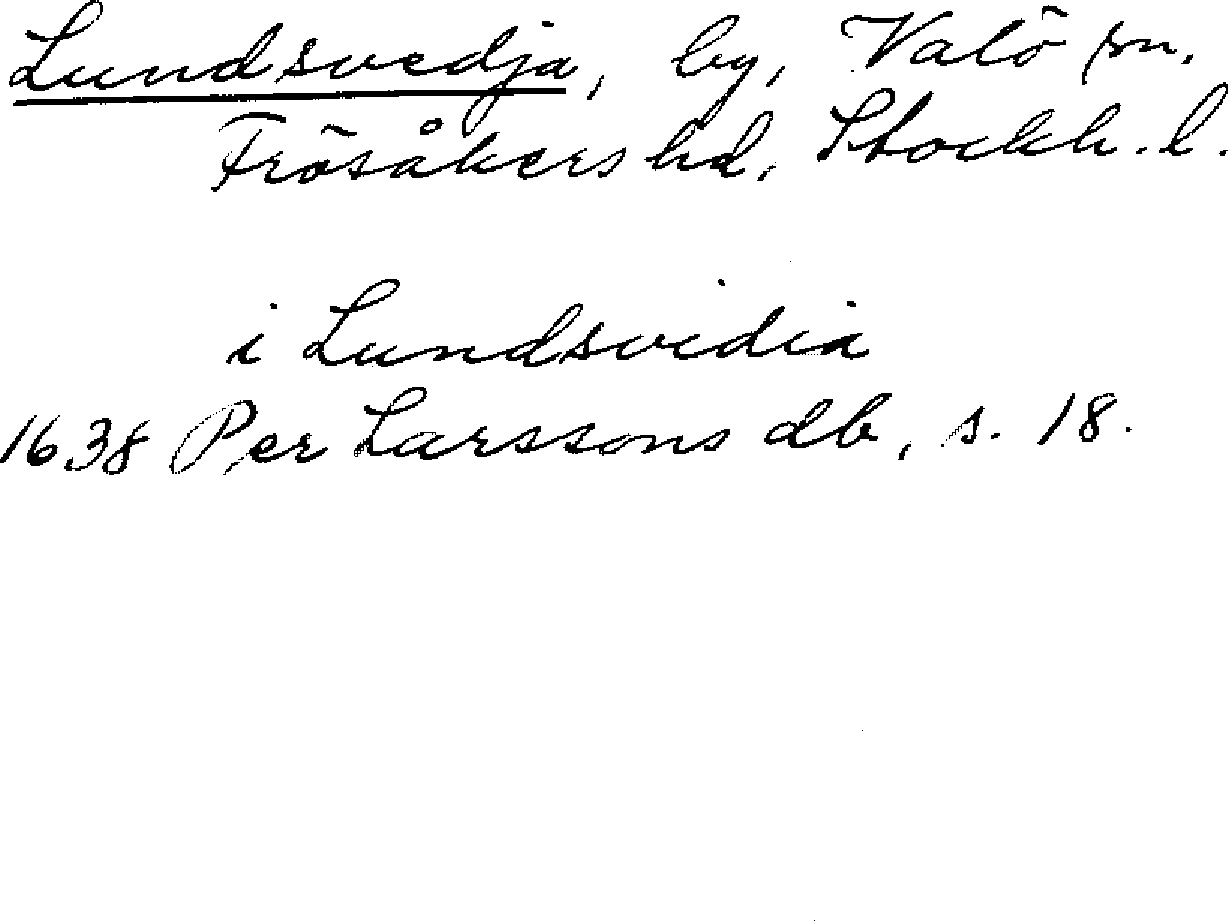 Lundsvedja, by, Valö sn.
Frösåkers hd, Stockh. l.
i Lundsvidia
1638 Per Larssons db, s. 18.